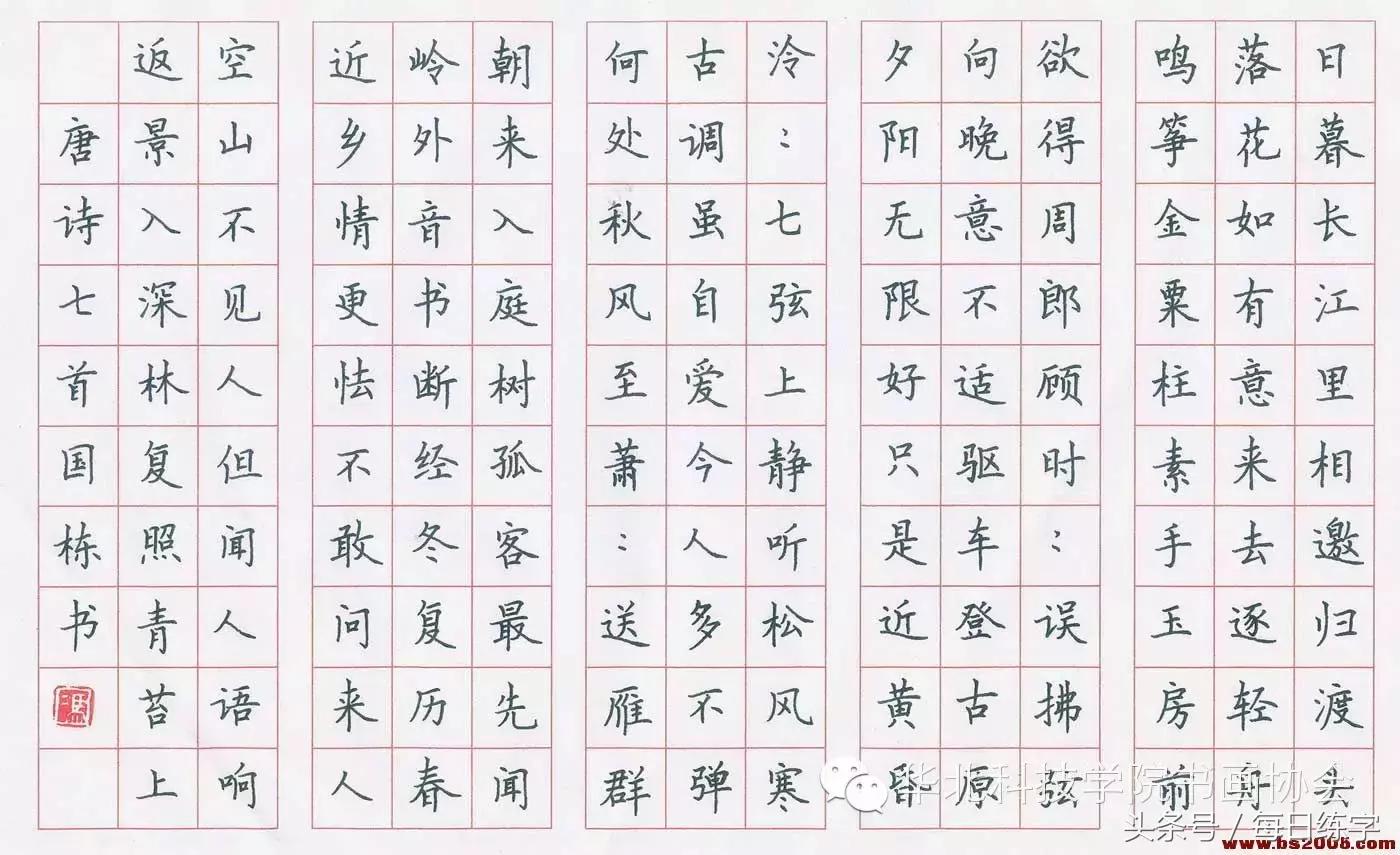 日暮长江里相邀归渡头
落花如有意来去逐轻舟
鸣筝金粟柱素手玉房前
欲得周郎顾时：误拂弦
向晚意不适驱车登古原
夕阳无限好只是近黄昏
泠：七弦上静听松风寒
古调虽自爱今人多不弹
何处秋风至萧：送雁群
朝来入庭树孤客最先闻
岭外音书断经冬复历春
近乡情更怯不敢问来人
空山不见人但闻人语响
返景入深林复照青苔上
唐诗七首国栋书
冯
华北科技学院书画协会
头条号 / 每日练字
www.bs2005.com